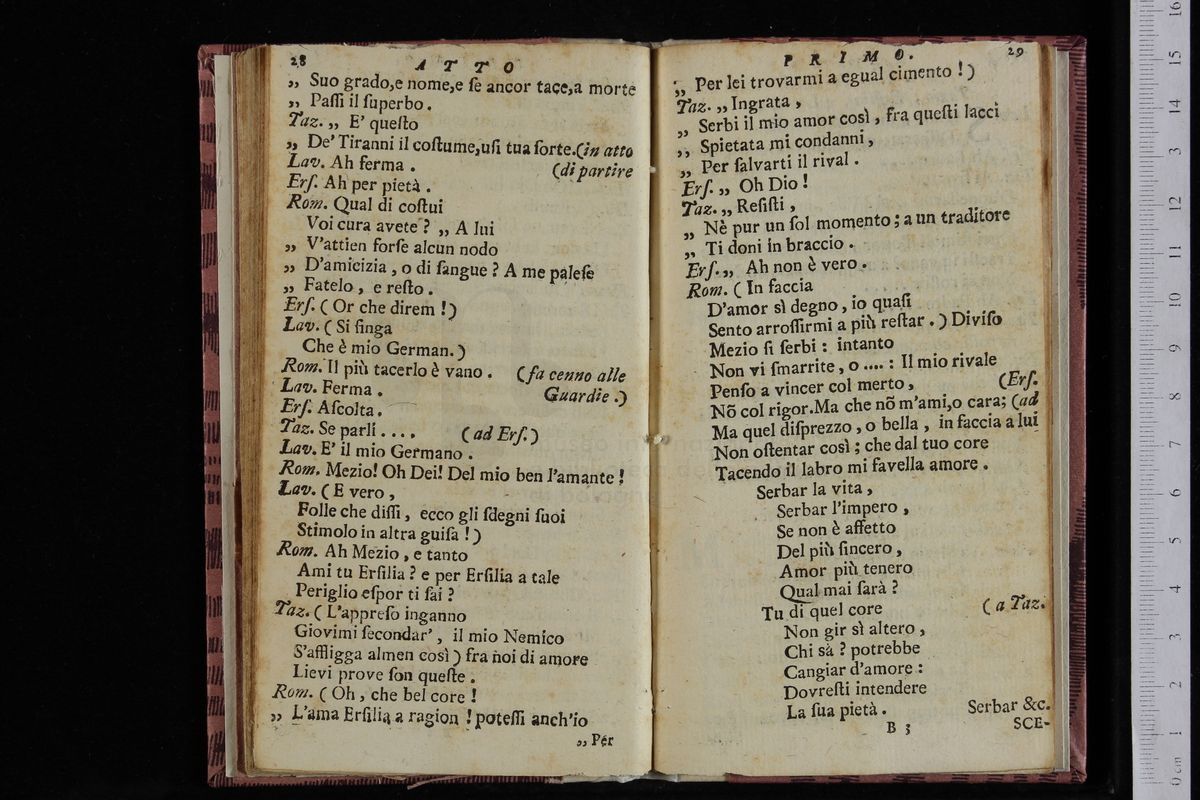 28 ATTO
„ Suo grado,e nome,e ſe ancor tace,a morte
„ Paſſi il ſuperbo.
Taz. „ E' queſto
„ De' Tiranni il coſtume,uſi tua ſorte.(in atto
Lav. Ah ferma. (di partire
Erſ. Ah per pietà.
Rom. Qual di coſtui
Voi cura avete? „ A lui
„ V'attien forſe alcun nodo
„ D'amicizia, o di ſangue? A me paleſe
„ Fatelo, e reſto.
Erſ. ( Or che direm!)
Lav. ( Si finga
Che è mio German.)
Rom. Il più tacerlo è vano. (fa cenno alle
Lav. Ferma. Guardie.)
Erſ. Aſcolta.
Taz. Se parli.... (ad Erſ.)
Lav. E' il mio Germano.
Rom. Mezio! Oh Dei! Del mio ben l'amante!
Lav. ( E vero,
Folle che diſſi, ecco gli ſdegni ſuoi
Stimolo in altra guiſa!)
Rom. Ah Mezio, e tanto
Ami tu Erſilia? e per Erſilia a tale
Periglio eſpor ti ſai?
Taz. ( L'appreſo inganno
Giovimi ſecondar', il mio Nemico
S'affligga almen così) fra noi di amore
Lievi prove ſon queſte.
Rom. ( Oh, che bel core!
„ L'ama Erſilia a ragion! poteſſi anch'io
„ Per
PRIMO. 29
„ Per lei trovarmi a egual cimento!)
Taz. „ Ingrata,
„ Serbi il mio amor così, fra queſti lacci
„ Spietata mi condanni,
„ Per ſalvarti il rival.
Erſ. „ Oh Dio!
Taz. „ Reſiſti,
„ Nè pur un ſol momento; a un traditore
„ Ti doni in braccio.
Erſ. „ Ah non è vero.
Rom. ( In faccia
D'amor sì degno, io quaſi
Sento arroſſirmi a più reſtar.) Diviſo
Mezio ſi ſerbi: intanto
Non vi ſmarrite, o ....: Il mio rivale
Penſo a vincer col merto, (Erſ.
Nõ col rigor. Ma che nõ m'ami,o cara; (ad
Ma quel diſprezzo, o bella, in faccia a lui
Non oſtentar così; che dal tuo core
Tacendo il labro mi favella amore.
Serbar la vita,
Serbar l'impero,
Se non è affetto
Del più ſincero,
Amor più tenero
Qual mai ſarà?
Tu di quel core (a Taz.
Non gir sì altero,
Chi sà? potrebbe
Cangiar d'amore:
Dovreſti intendere
La ſua pietà. Serbar &c.
B 3 SCE-